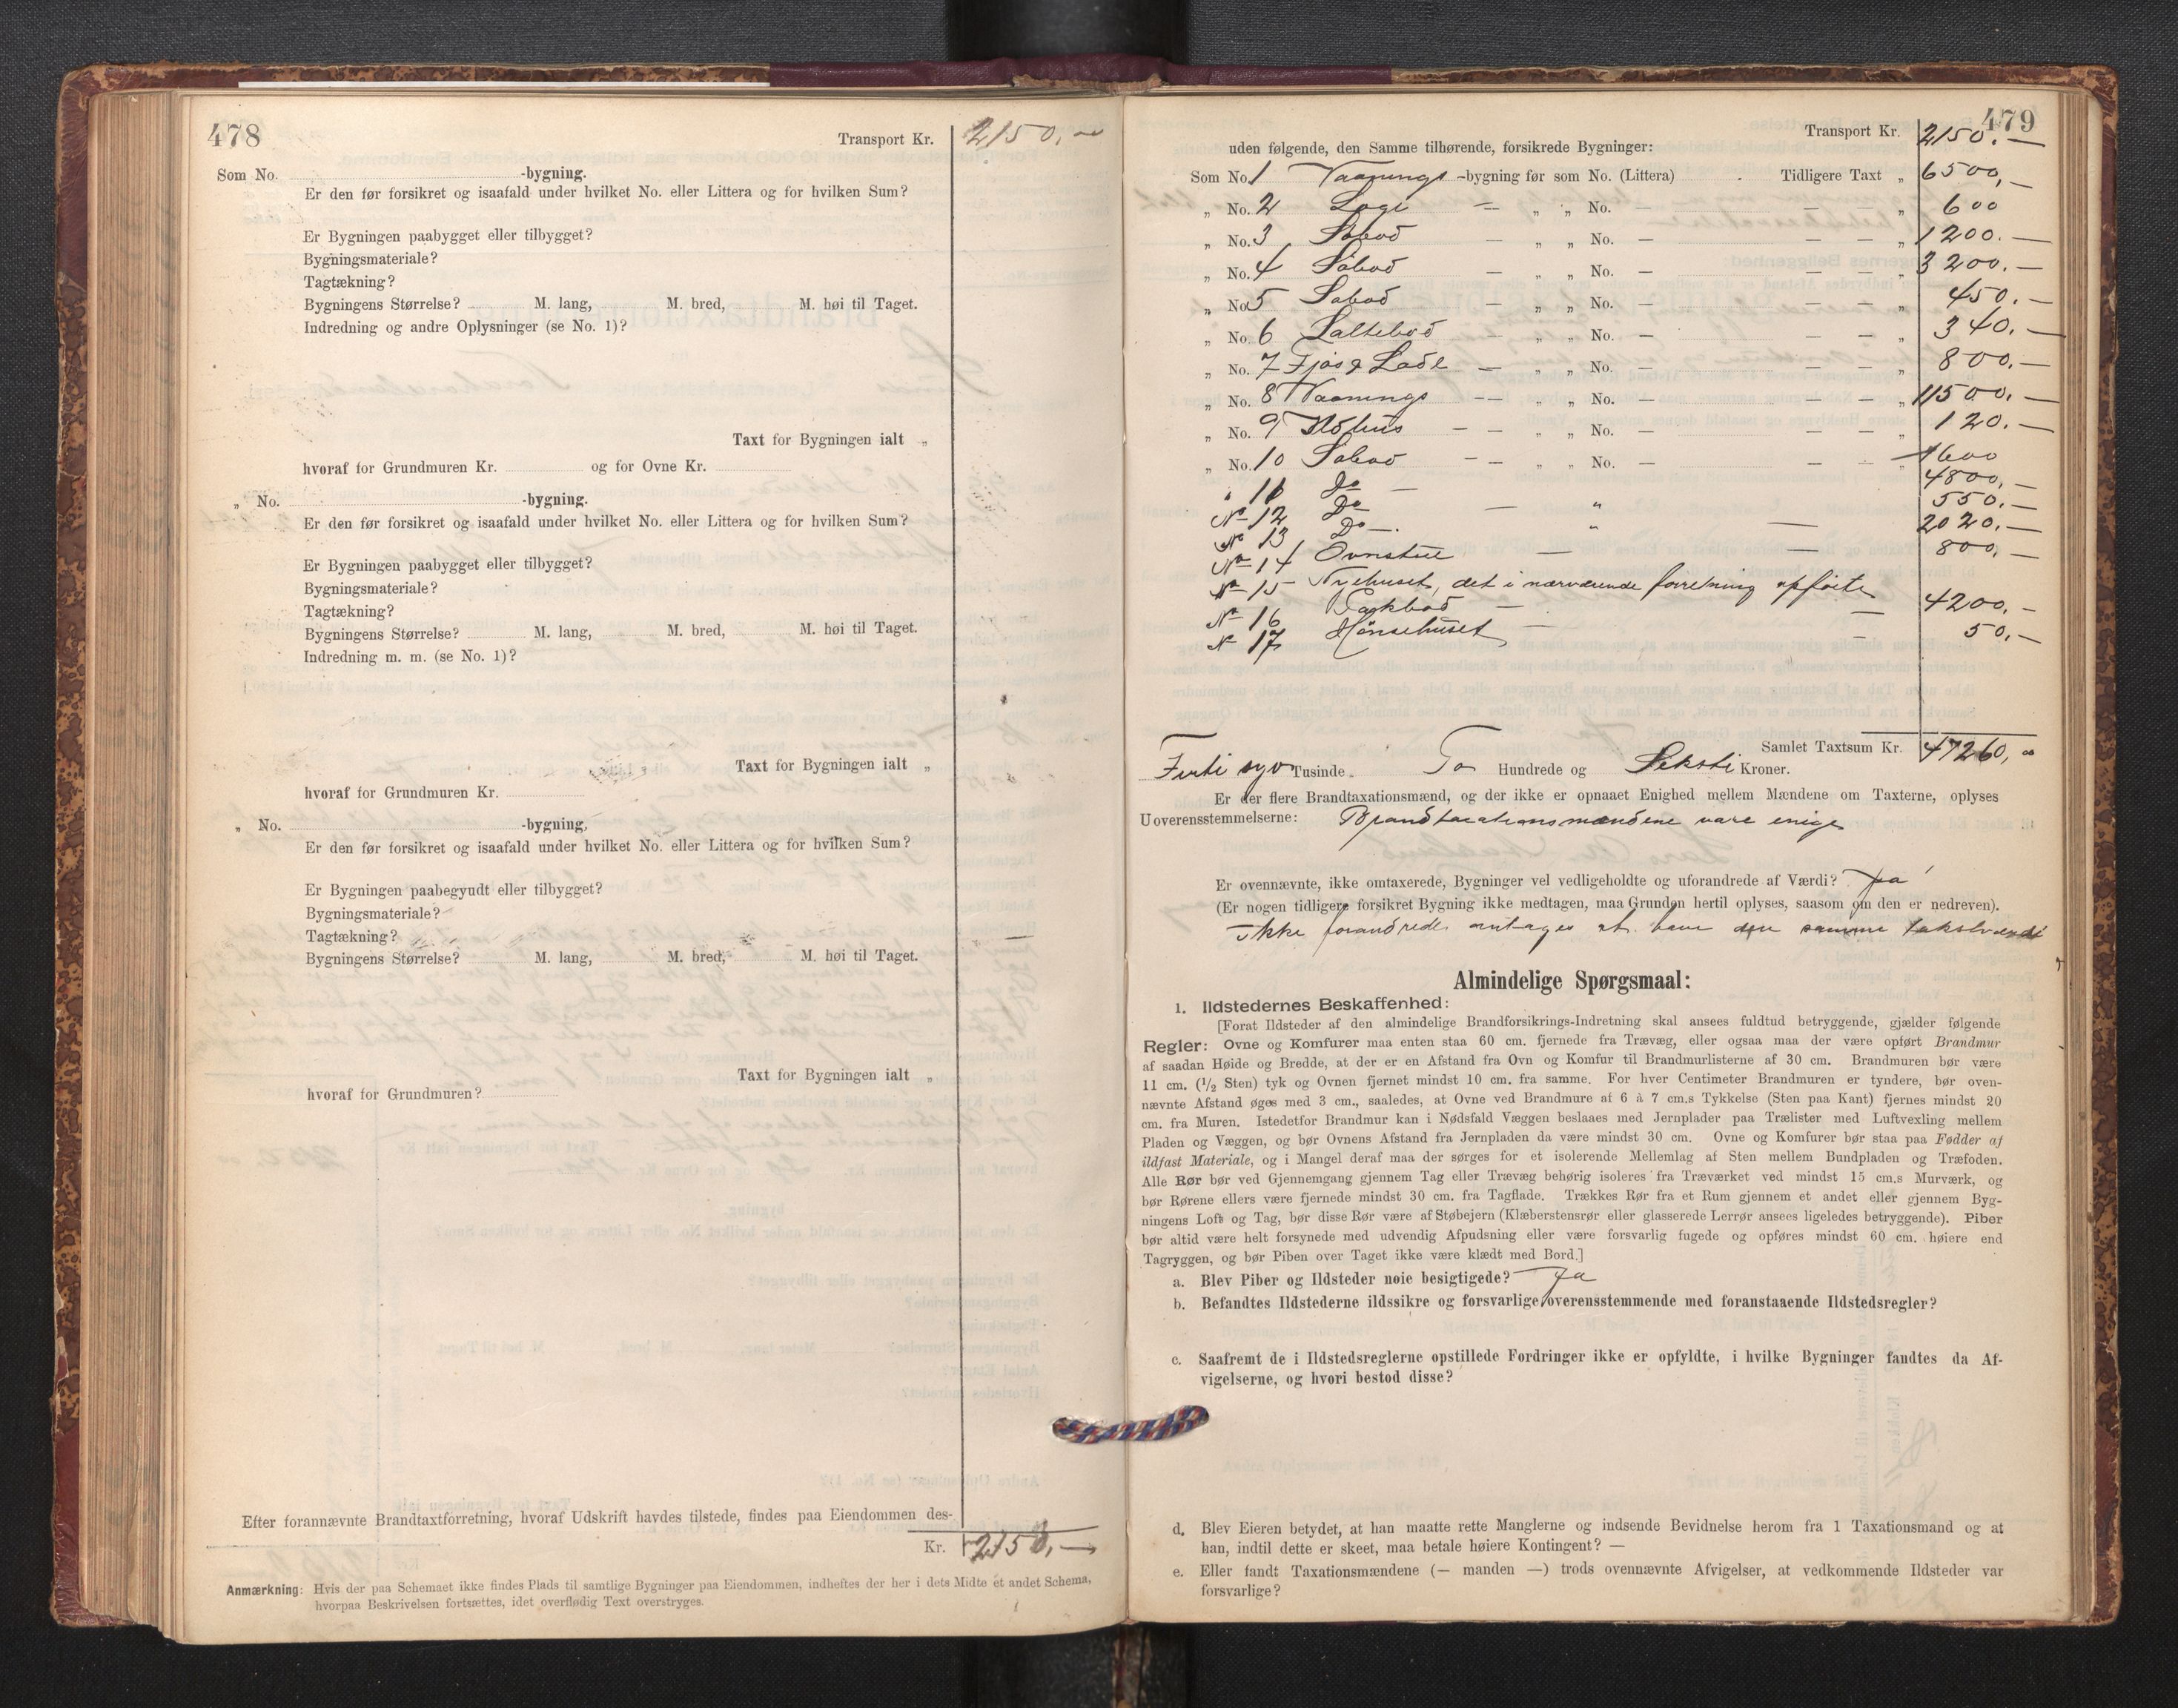 478
Transport Kr. 2150,00
Som No. -bygning.
Er den før forsikret og isaafald under hvilket No. eller Littera og for hvilken Sum?
Er Bygningen paabygget eller tilbygget?
Bygningsmateriale?
Tagtækning?
Bygningens Størrelse? M. lang, M. bred, M. høi til Taget.
Indredning og andre Oplysninger (se No. 1)?
Taxt for Bygningen ialt „
hvoraf for Grundmuren Kr. og for Ovne Kr.
„ No. -bygning.
Er den før forsikret og isaafald under hvilket No. eller Littera og for hvilken Sum?
Er Bygningen paabygget eller tilbygget?
Bygningsmateriale?
Tagtækning?
Bygningens Størrelse? M. lang, M. bred, M. høi til Taget.
Indredning m. m. (se No. 1)?
Taxt for Bygningen ialt „
hvoraf for Grundmuren Kr.
„ No. -bygning,
Er den før forsikret og isaafald under hvilket No. eller Littera og for hvilken Sum?
Er Bygningen paabegyndt eller tilbygget?
Bygningsmateriale?
Tagtækning?
Bygningens Størrelse? M. lang, M. bred, M. høi til Taget.
Taxt for Bygningen ialt „
hvoraf for Grundmuren?
Efter forannævnte Brandtaxtforretning, hvoraf Udskrift havdes tilstede, findes paa Eiendommen des-
Kr. 2150,—
Anmærkning: Hvis der paa Schemaet ikke findes Plads til samtlige Bygninger paa Eiendommen, indheftes der her i dets Midte et andet Schema,
hvorpaa Beskrivelsen fortsættes, idet overflødig Text overstryges.
479
Transport Kr. 2150.—
uden følgende, den Samme tilhørende, forsikrede Bygninger:
Som No. 1 Vaanings -bygning før som No. (Littera) Tidligere Taxt „ 6500,—
„ No. 2 Loge — „ „ No. — — — „ 600
„ No. 3 Søbod — „ „ No. — — — „ 1200.—
„ No. 4 Søbod — „ „ No. — — — „ 3200.—
„ No. 5 Søbod — „ „ No. — — — „ 450.—
„ No. 6 Saltebod — „ „ No. — — — „ 340.—
„ No. 7 Fjøs & Lade — „ „ No. — — — „ 800.—
„ No. 8 Vaanings — „ „ No. — — — „ 11500.—
„ No. 9 — — „ „ No. — — — „ 120.—
„ No. 10 Søbod — — „ „ No. — — — „ 1600
„ 11 Do — 4800,—
No 12 Do — „ 550.—
No 13 Do —. „ — 2020.—
No 14 Ovnstue — — 800,—
No 15 – Nyehuset, det i nærværende forretning opførte
No 16 Pakbod — — 4200,—
N 17 Hønsehuset — — 50,—
Samlet Taxtsum Kr. 47260,00
Firti syv Tusinde To Hundrede og Seksti Kroner.
Er der flere Brandtaxationsmænd, og der ikke er opnaaet Enighed mellem Mændene om Taxterne, oplyses
Uoverensstemmelserne: Brandtaxationsmændene vare enige
Er ovennævnte, ikke omtaxerede, Bygninger vel vedligeholdte og uforandrede af Værdi? Ja
(Er nogen tidligere forsikret Bygning ikke medtagen, maa Grunden hertil oplyses, saasom om den er nedreven).
Ikke forandrede antages at have den samme takstværdi
Almindelige Spørgsmaal:
1. Ildstedernes Beskaffenhed:
[Forat Ildsteder af den almindelige Brandforsikrings-Indretning skal ansees fuldtud betryggende, gjælder følgende
Regler: Ovne og Komfurer maa enten staa 60 cm. fjernede fra Trævæg, eller ogsaa maa der være opført Brandmur
af saadan Høide og Bredde, at der er en Afstand fra Ovn og Komfur til Brandmurlisterne af 30 cm. Brandmuren bør være
11 cm. (1/2 Sten) tyk og Ovnen fjernet mindst 10 cm. fra samme. For hver Centimeter Brandmuren er tyndere, bør oven-
nævnte Afstand øges med 3 cm., saaledes, at Ovne ved Brandmure af 6 à 7 cm.s Tykkelse (Sten paa Kant) fjernes mindst 20
cm. fra Muren. Istedetfor Brandmur kan i Nødsfald Væggen beslaaes med Jernplader paa Trælister med Luftvexling mellem
Pladen og Væggen, og bør Ovnens Afstand fra Jernpladen da være mindst 30 cm. Ovne og Komfurer bør staa paa Fødder af
ildfast Materiale, og i Mangel deraf maa der sørges for et isolerende Mellemlag af Sten mellem Bundpladen og Træfoden.
Alle Rør bør ved Gjennemgang gjennem Tag eller Trævæg behørig isoleres fra Træværket ved mindst 15 cm.s Murværk, og
bør Rørene ellers være fjernede mindst 30 cm. fra Tagflade. Trækkes Rør fra et Rum gjennem et andet eller gjennem Byg-
ningens Loft og Tag, bør disse Rør være af Støbejern (Klæberstensrør eller glasserede Lerrør ansees ligeledes betryggende). Piber
bør altid være helt forsynede med udvendig Afpudsning eller være forsvarlig fugede og opføres mindst 60 cm. høiere end
Tagryggen, og bør Piben over Taget ikke være klædt med Bord.]
a. Blev Piber og Ildsteder nøie besigtigede? Ja
b. Befandtes Ildstederne ildssikre og forsvarlige, overensstemmende med foranstaaende Ildstedsregler?
c. Saafremt de i Ildstedsreglerne opstillede Fordringer ikke er opfyldte, i hvilke Bygninger fandtes da Af-
vigelserne, og hvori bestod disse?
d. Blev Eieren betydet, at han maatte rette Manglerne og indsende Bevidnelse herom fra 1 Taxationsmand og at
han, indtil dette er skeet, maa betale høiere Kontingent? —
e. Eller fandt Taxationsmændene (— manden —) trods ovennævnte Afvigelser, at vedkommende Ildsteder var
forsvarlige?